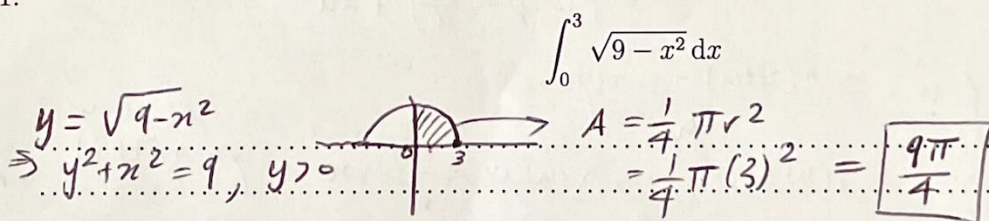 1.
∫₀³ √(9 − x²) dx
y = √(9-x²)
⇒ y²+x² = 9, y>0
0 3
A = 1/4 πr²
= 1/4 π(3)² = 9π/4